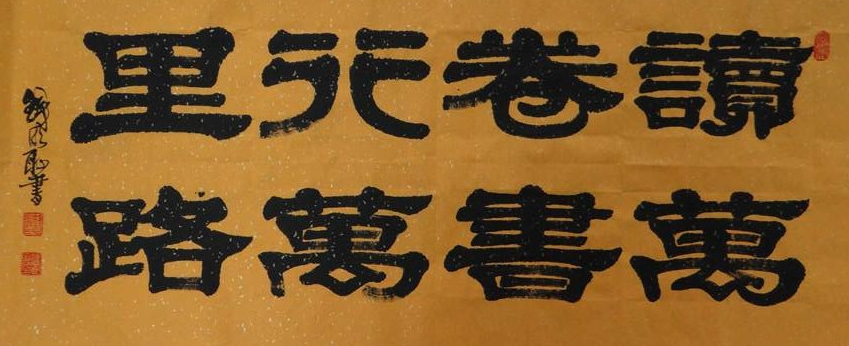 讀萬
卷書
行萬
里路